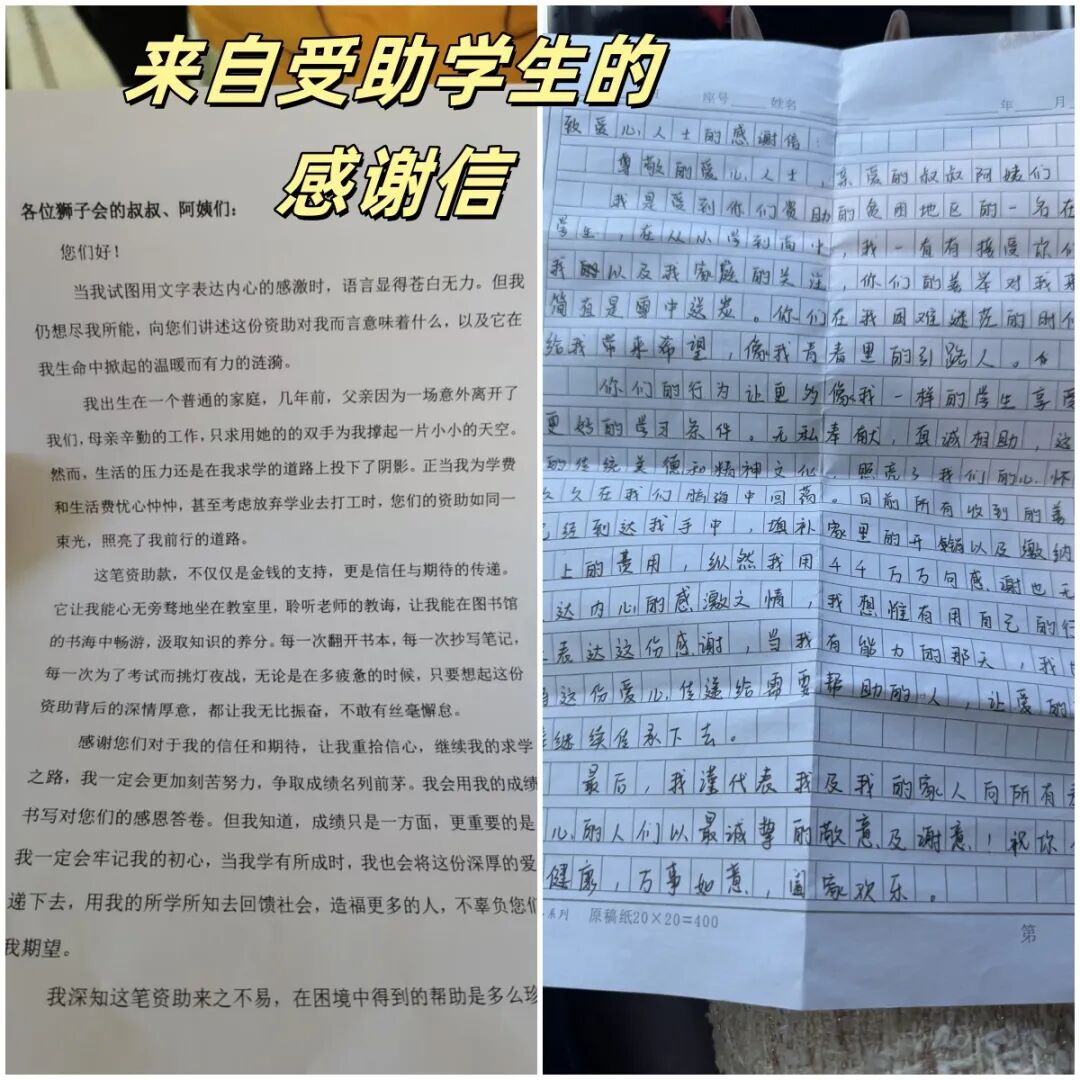 来自受助学生的
感谢信
各位狮子会的叔叔、阿姨们：
您们好！
当我试图用文字表达内心的感激时，语言显得苍白无力。但我
仍想尽我所能，向您们讲述这份资助对我而言意味着什么，以及它在
我生命中掀起的温暖而有力的涟漪。
我出生在一个普通的家庭，几年前，父亲因为一场意外离开了
我们，母亲辛勤的工作，只求用她的的双手为我撑起一片小小的天空。
然而，生活的压力还是在我求学的道路上投下了阴影。正当我为学费
和生活费忧心忡忡，甚至考虑放弃学业去打工时，您们的资助如同一
束光，照亮了我前行的道路。
这笔资助款，不仅仅是金钱的支持，更是信任与期待的传递。
它让我能心无旁骛地坐在教室里，聆听老师的教诲，让我能在图书馆
的书海中畅游，汲取知识的养分。每一次翻开书本，每一次抄写笔记，
每一次为了考试而挑灯夜战，无论是在多疲惫的时候，只要想起这份
资助背后的深情厚意，都让我无比振奋，不敢有丝毫懈怠。
感谢您们对于我的信任和期待，让我重拾信心，继续我的求学
之路，我一定会更加刻苦努力，争取成绩名列前茅。我会用我的成绩
书写对您们的感恩答卷。但我知道，成绩只是一方面，更重要的是
我一定会牢记我的初心，当我学有所成时，我也会将这份深厚的爱
递下去，用我的所学所知去回馈社会，造福更多的人，不辜负您们
我期望。
我深知这笔资助来之不易，在困境中得到的帮助是多么珍
座号 姓名 年 月
致爱心人士的感谢信：
尊敬的爱心人士，亲爱的叔叔阿姨们
我是受到你们资助的贫困地区的一名在
学生，在从小学到高中，我一直有接受你们
我以及我家庭的关注，你们的善举对我来
简直是雪中送炭。你们在我困难迷茫的时
给我带来希望，像我青春里的引路人。
你们的行为让更多像我一样的学生享受
更好的学习条件。无私奉献，真诚相助，这
的传统美德和精神文化，照亮了我们的心怀
久久在我们脑海中回荡。目前所有收到的善
已经到达我手中，填补家里的开销以及缴纳
上的费用，纵然我用千千万万句感谢也无
达内心的感激之情，我想惟有用自己的行
表达这份感谢，当我有能力的那天，我
这份爱心传递给需要帮助的人，让爱的
继续传承下去。
最后，我谨代表我及我的家人向所有
心的人们以最诚挚的敬意及谢意！祝你
健康，万事如意，阖家欢乐。
系列 原稿纸20×20=400
第